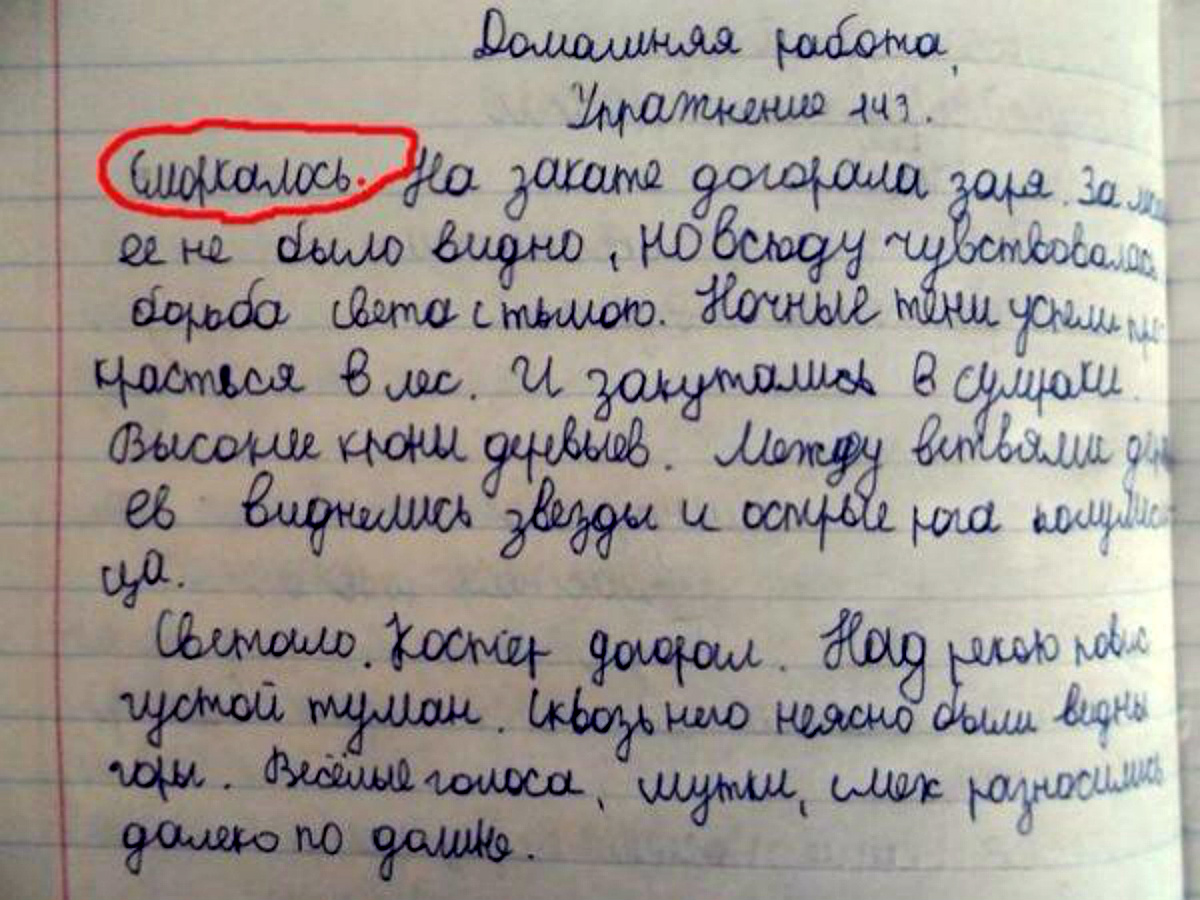 Домашняя работа.
Упражнение 143.
Сморкалось. На закате догорала заря. За
ее не было видно, но всюду чувствовалась
борьба света с тьмою. Ночные тени успели про-
красться в лес. И закутались в сумраки.
Высокие кроны деревьев. Между ветвями дер
ев виднелись звезды и острые рога полумеся
ца.
Светало. Костёр догорал. Над рекою повис
густой туман. Сквозь него неясно были видны
горы. Весёлые голоса, шутки, смех разносились
далеко по долине.